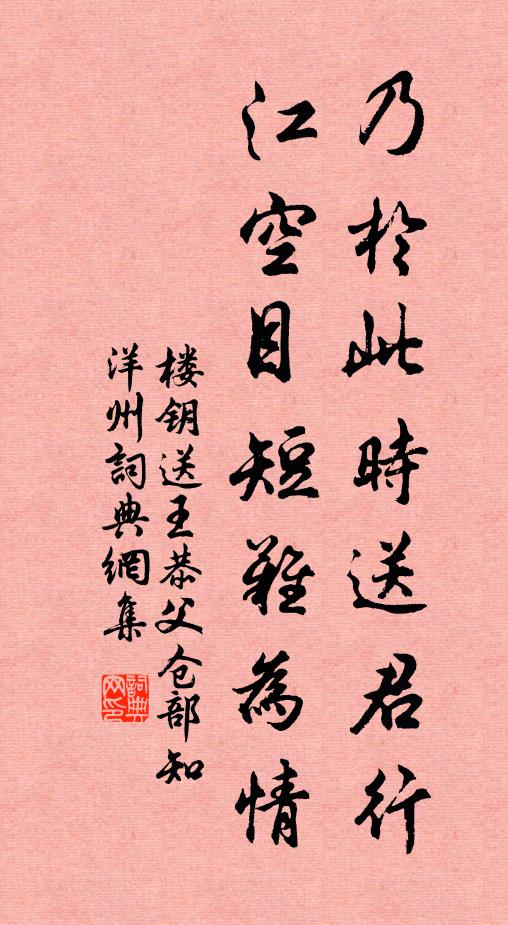 乃於此時送君行
江空目短難為情
楼钥送王恭父仓部知
洋州詞典網集
詞典网印